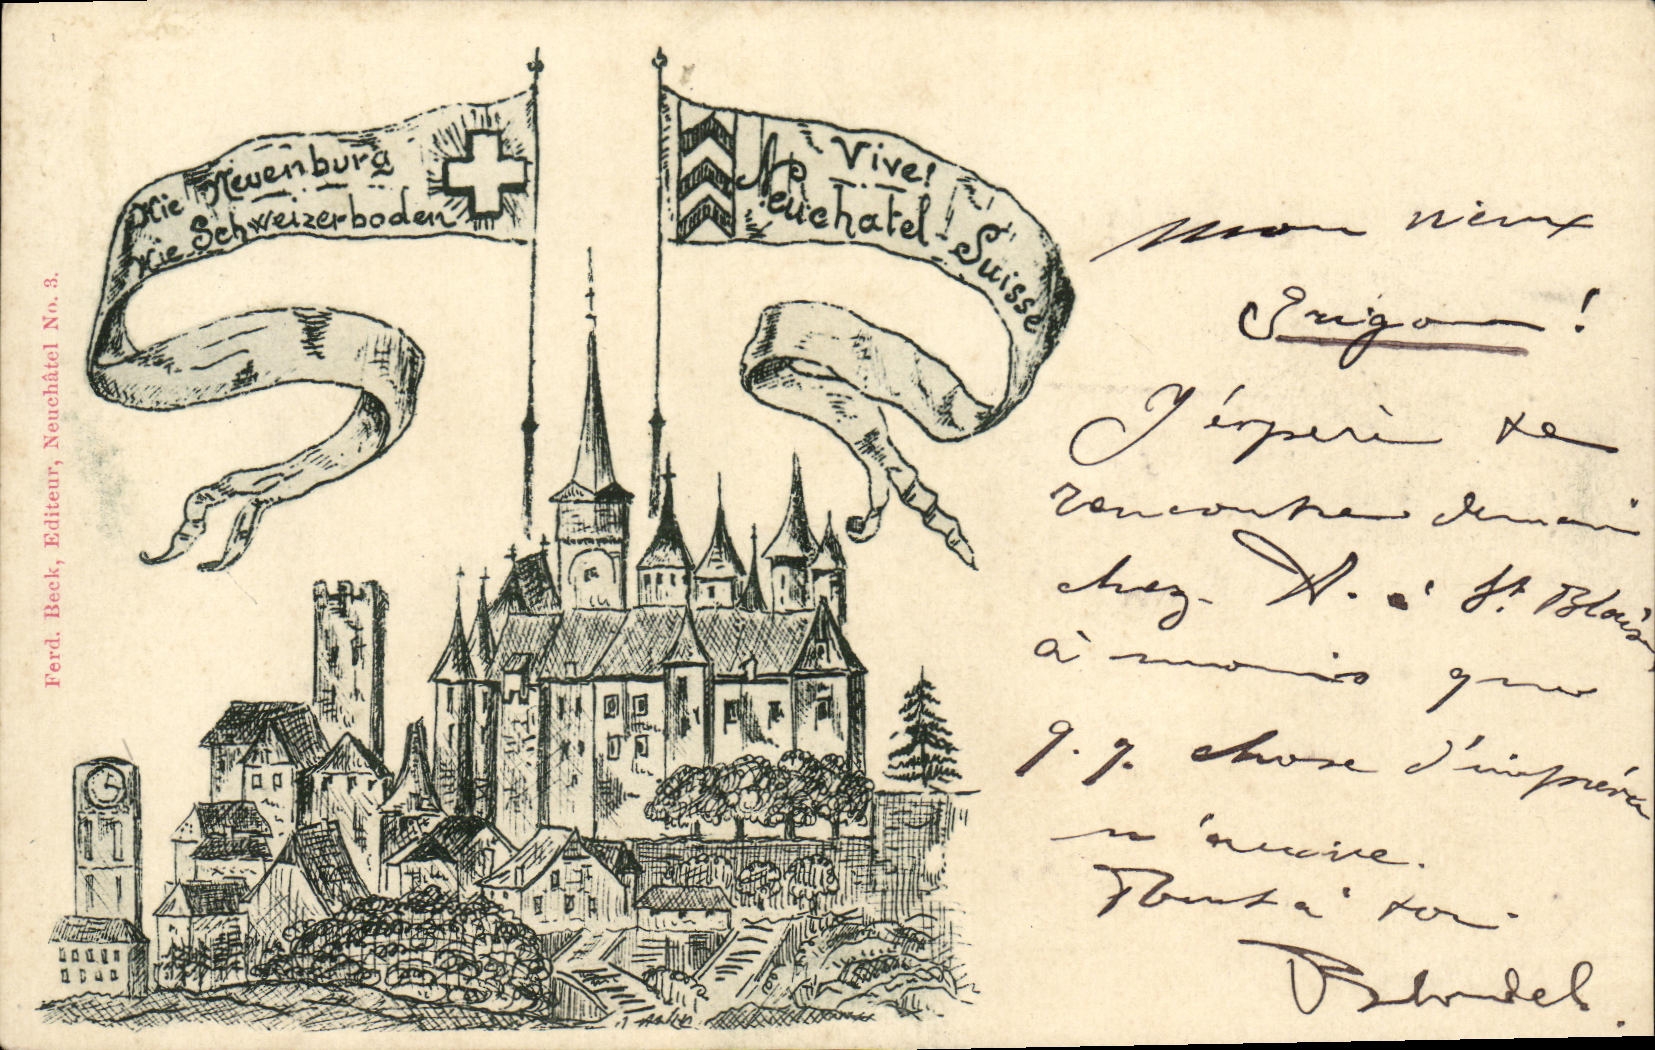 Hie Neuenburg
Hie Schweizerboden
Vive!
Neuchatel-Suisse
Ferd. Beck, Editeur, Neuchâtel No. 3.
Mon vieux
!
J'éspère te
rencontrer demain
chez A. à St Blaise
à moins que
q.q. chose d'imprévu
n'arrive.
Tout à toi
Blondel.